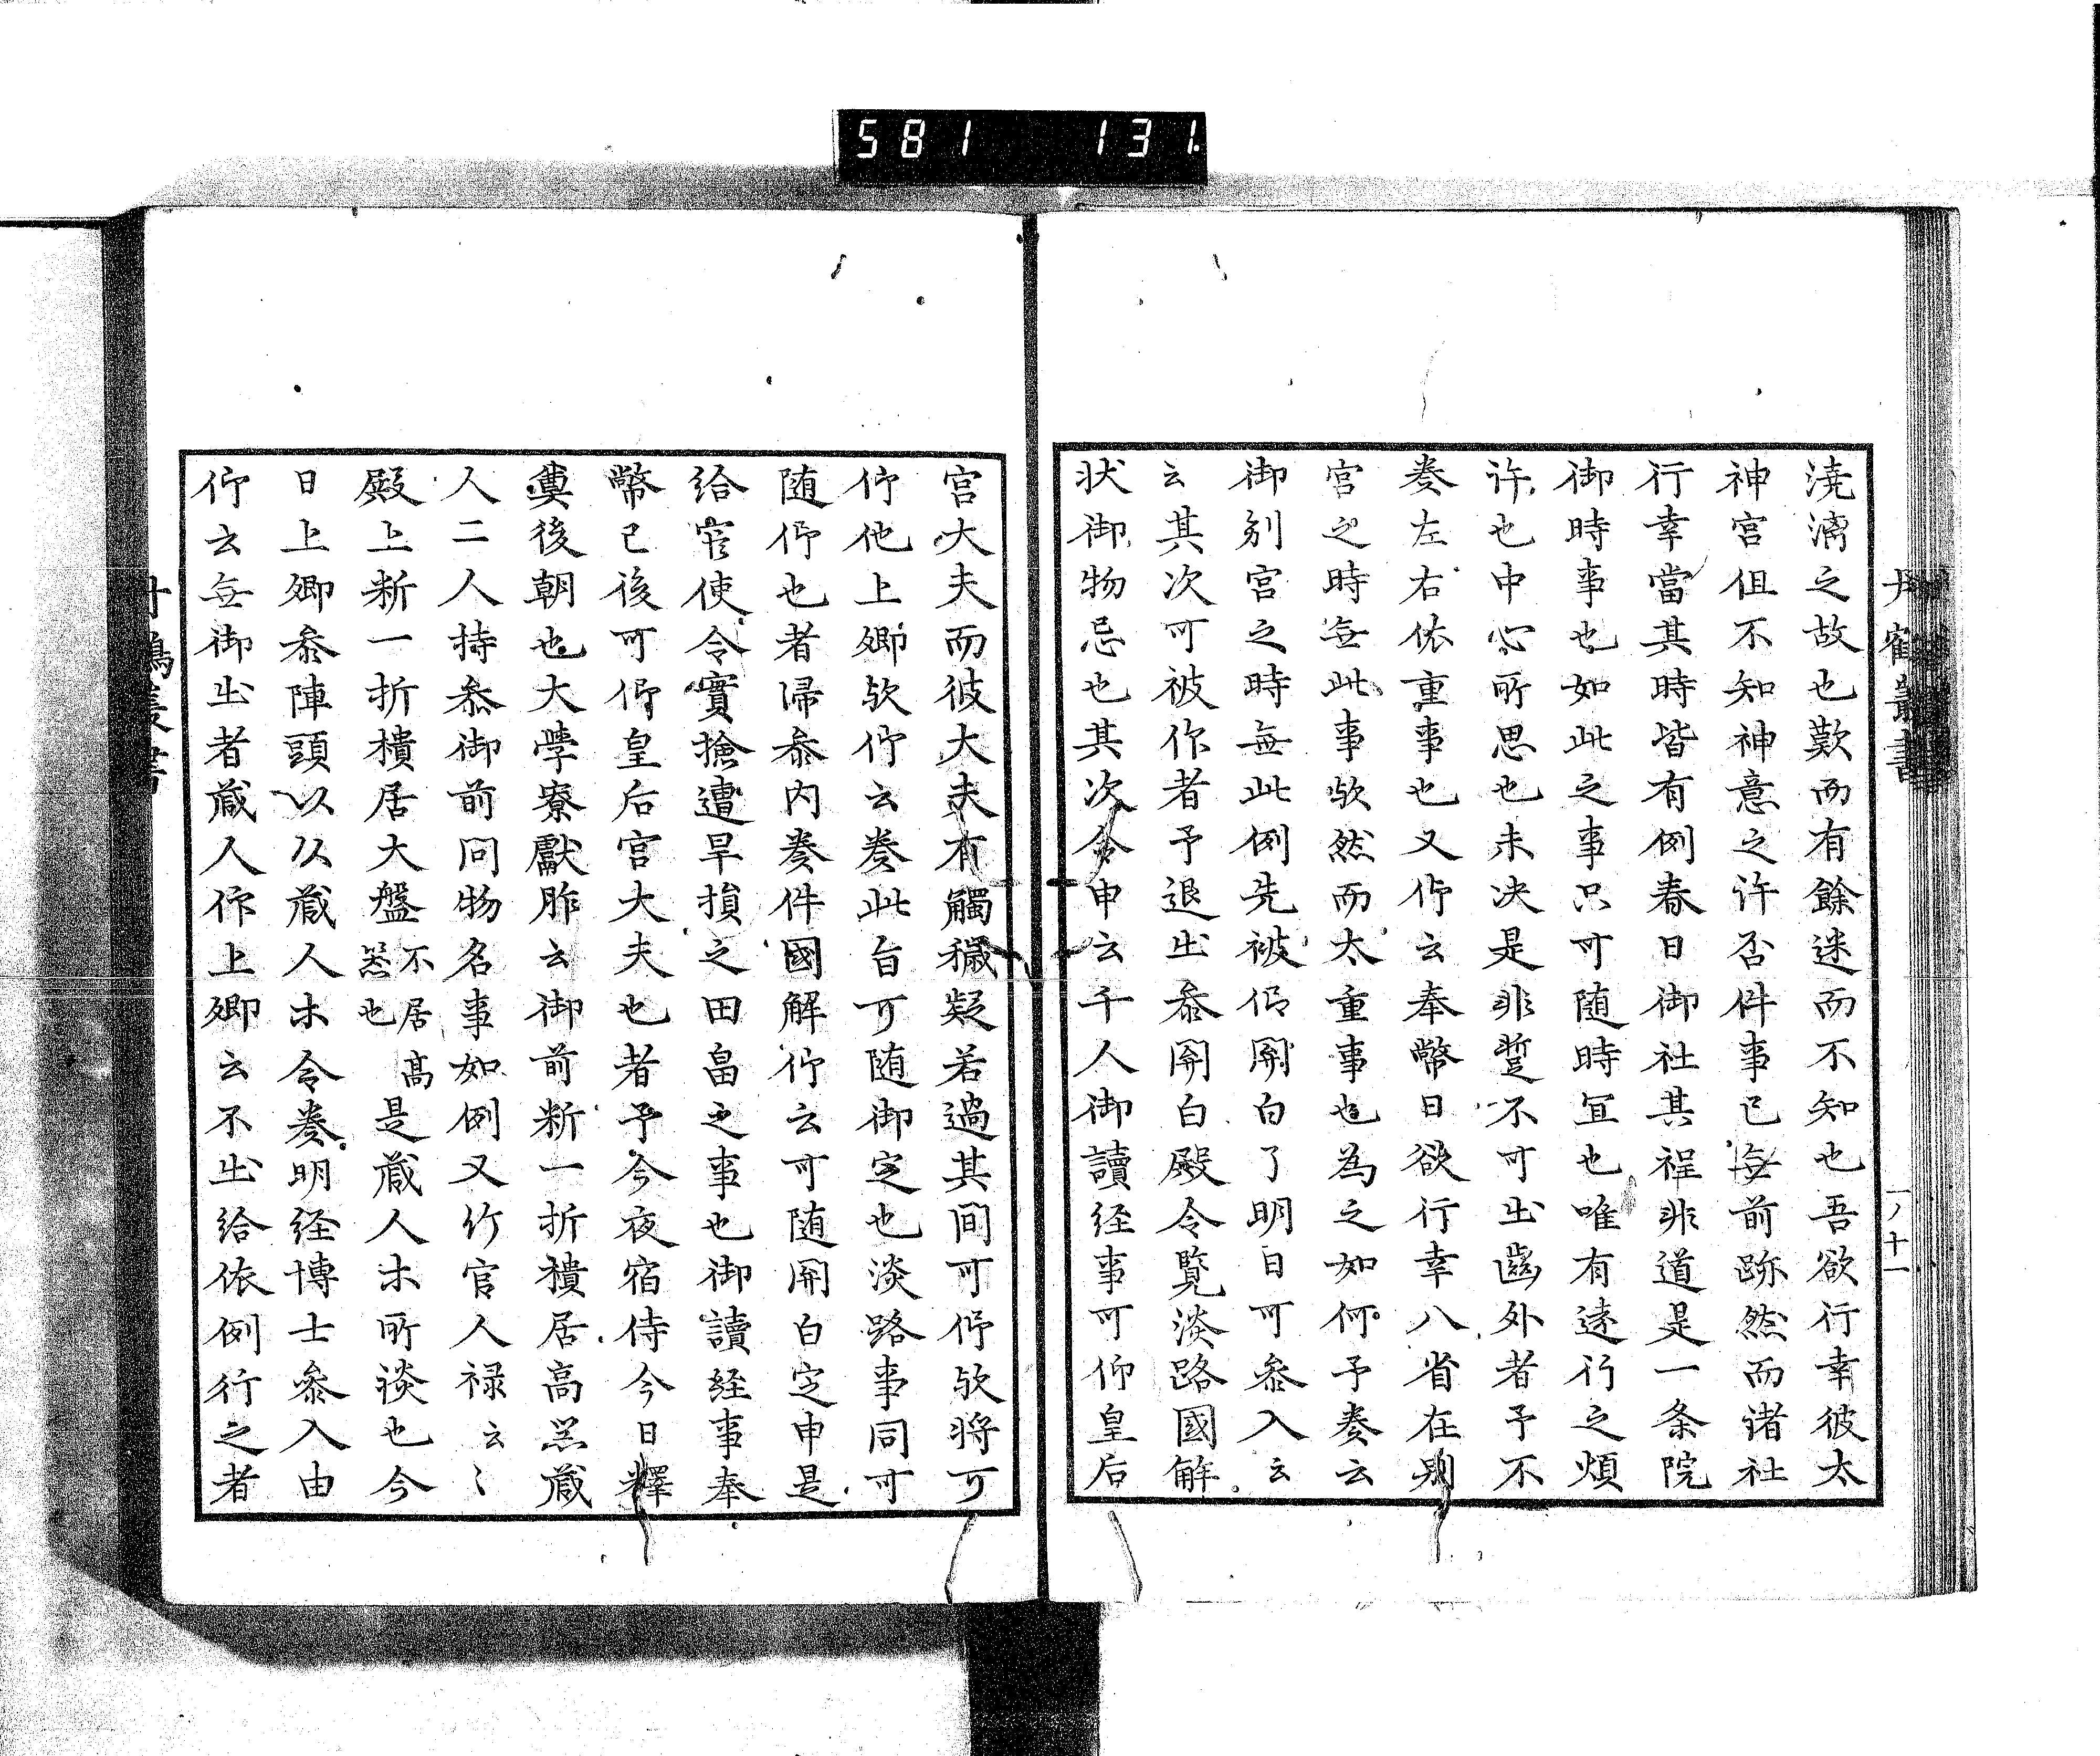 581 131
丹鶴叢書
一ノ十一
澆漓之故也歎而有餘迷而不知也吾欲行幸彼太
神宮但不知神意之许否件事已每前跡然而诸社
行幸當其時皆有例春日御社其程非道是一条院
御時事也如此之事只可随時冝也唯有遠行之煩
许也中心所思也未决是非蹔不可出齒外者予不
奏左右依重事也又仰云奉幣日欲行幸八省在別
宮之時無此事欤然而太重事也為之如何予奏云
御別宮之時無此例先被仰関白了明日可参入云
云其次可被作者予退出参関白殿令覧淡路國解
状御物忌也其次令申云千人御讀経事可仰皇后
宮大夫而彼大夫有觸穢疑若過其间可仰欤将可
仰他上卿欤仰云奏此旨可随御定也淡路事同可
随仰也者帰参内奏件國解仰云可随関白定申是
給官使令實撿遭旱損之田畠之事也御讀経事奉
幣已後可仰皇后宮大夫也者予今夜宿侍今日釋
奠後朝也大學寮獻胙云御前断一折樻居高器蔵
人二人持参御前问物名事如例又竹官人禄云〻
殿上断一折樻居大盤不居高器也是蔵人木所談也今
日上卿参陣頭以以蔵人木令奏明经博士参入由
仰云無御出者蔵人仰上卿云不出給依例行之者